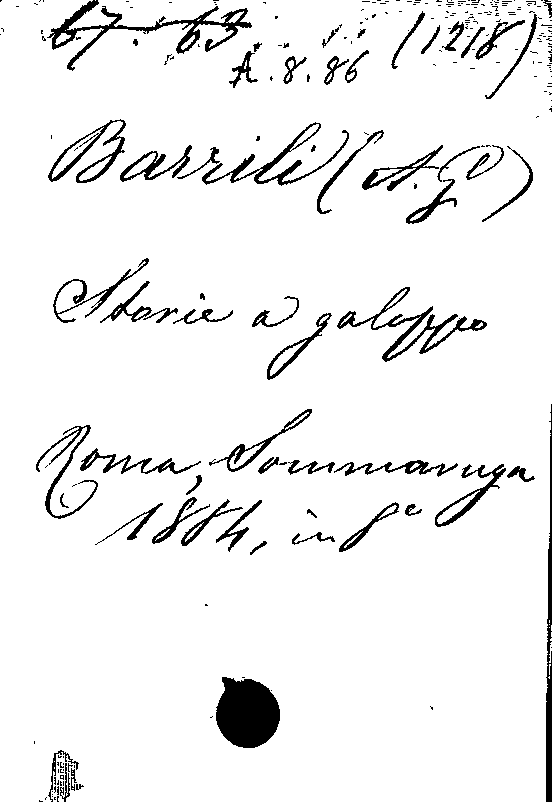 67. 63 (1218)
A. 8. 86
Barrili (A. G.)
Storie a galoppo
Roma, Sommaruga
1884, in 8°